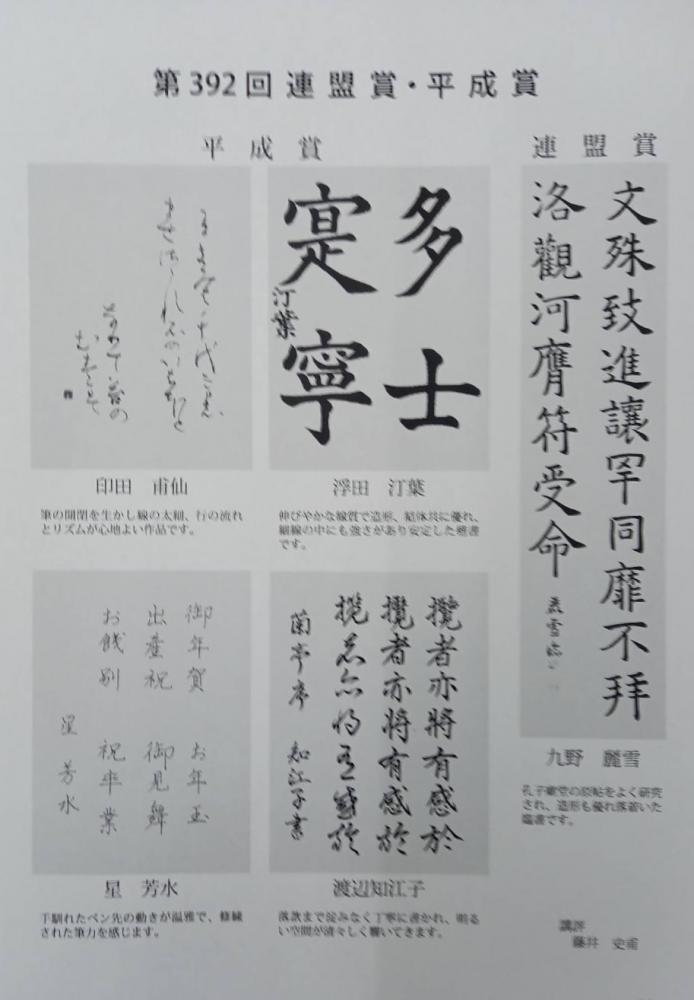 第392回 連盟賞・平成賞
連盟賞
文殊致進讓罕同靡不拜
洛觀河膺符受命
九野 麗雪
孔子廟堂の原帖をよく研究
され、造形も優れ落着いた
臨書です。
平成賞
多士
寔寧
汀葉
浮田 汀葉
伸びやかな線質で造形、結体共に優れ、
細線の中にも強さがあり安定した楷書
です。
印田 甫仙
筆の開閉を生かし線の太細、行の流れ
とリズムが心地よい作品です。
攬者亦將有感於
攬者亦將有感於
攬者亦將有感於
蘭亭序 知江子書
渡辺知江子
落款まで淀みなく丁寧に書かれ、明る
い空間が清々しく響いてきます。
御年賀 お年玉
出産祝 御見舞
お餞別 祝卒業
星芳水
星 芳水
手馴れたペン先の動きが温雅で、修練
された筆力を感じます。
講評
藤井 史甫